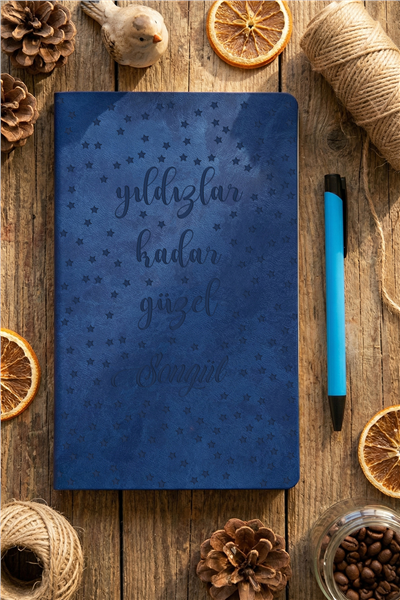 yıldızlar
kadar
güzel
Songül